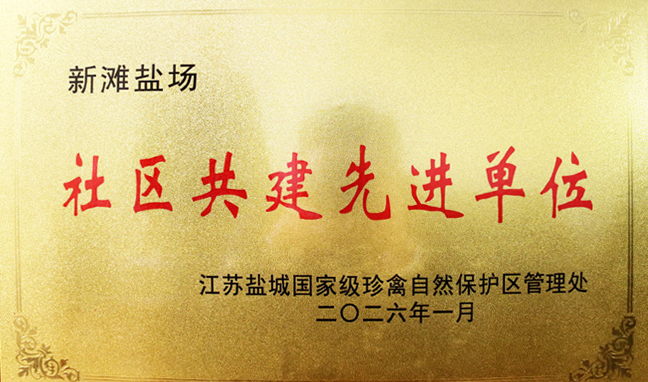 新滩盐场
社区共建先进单位
江苏盐城国家级珍禽自然保护区管理处
二〇二六年一月